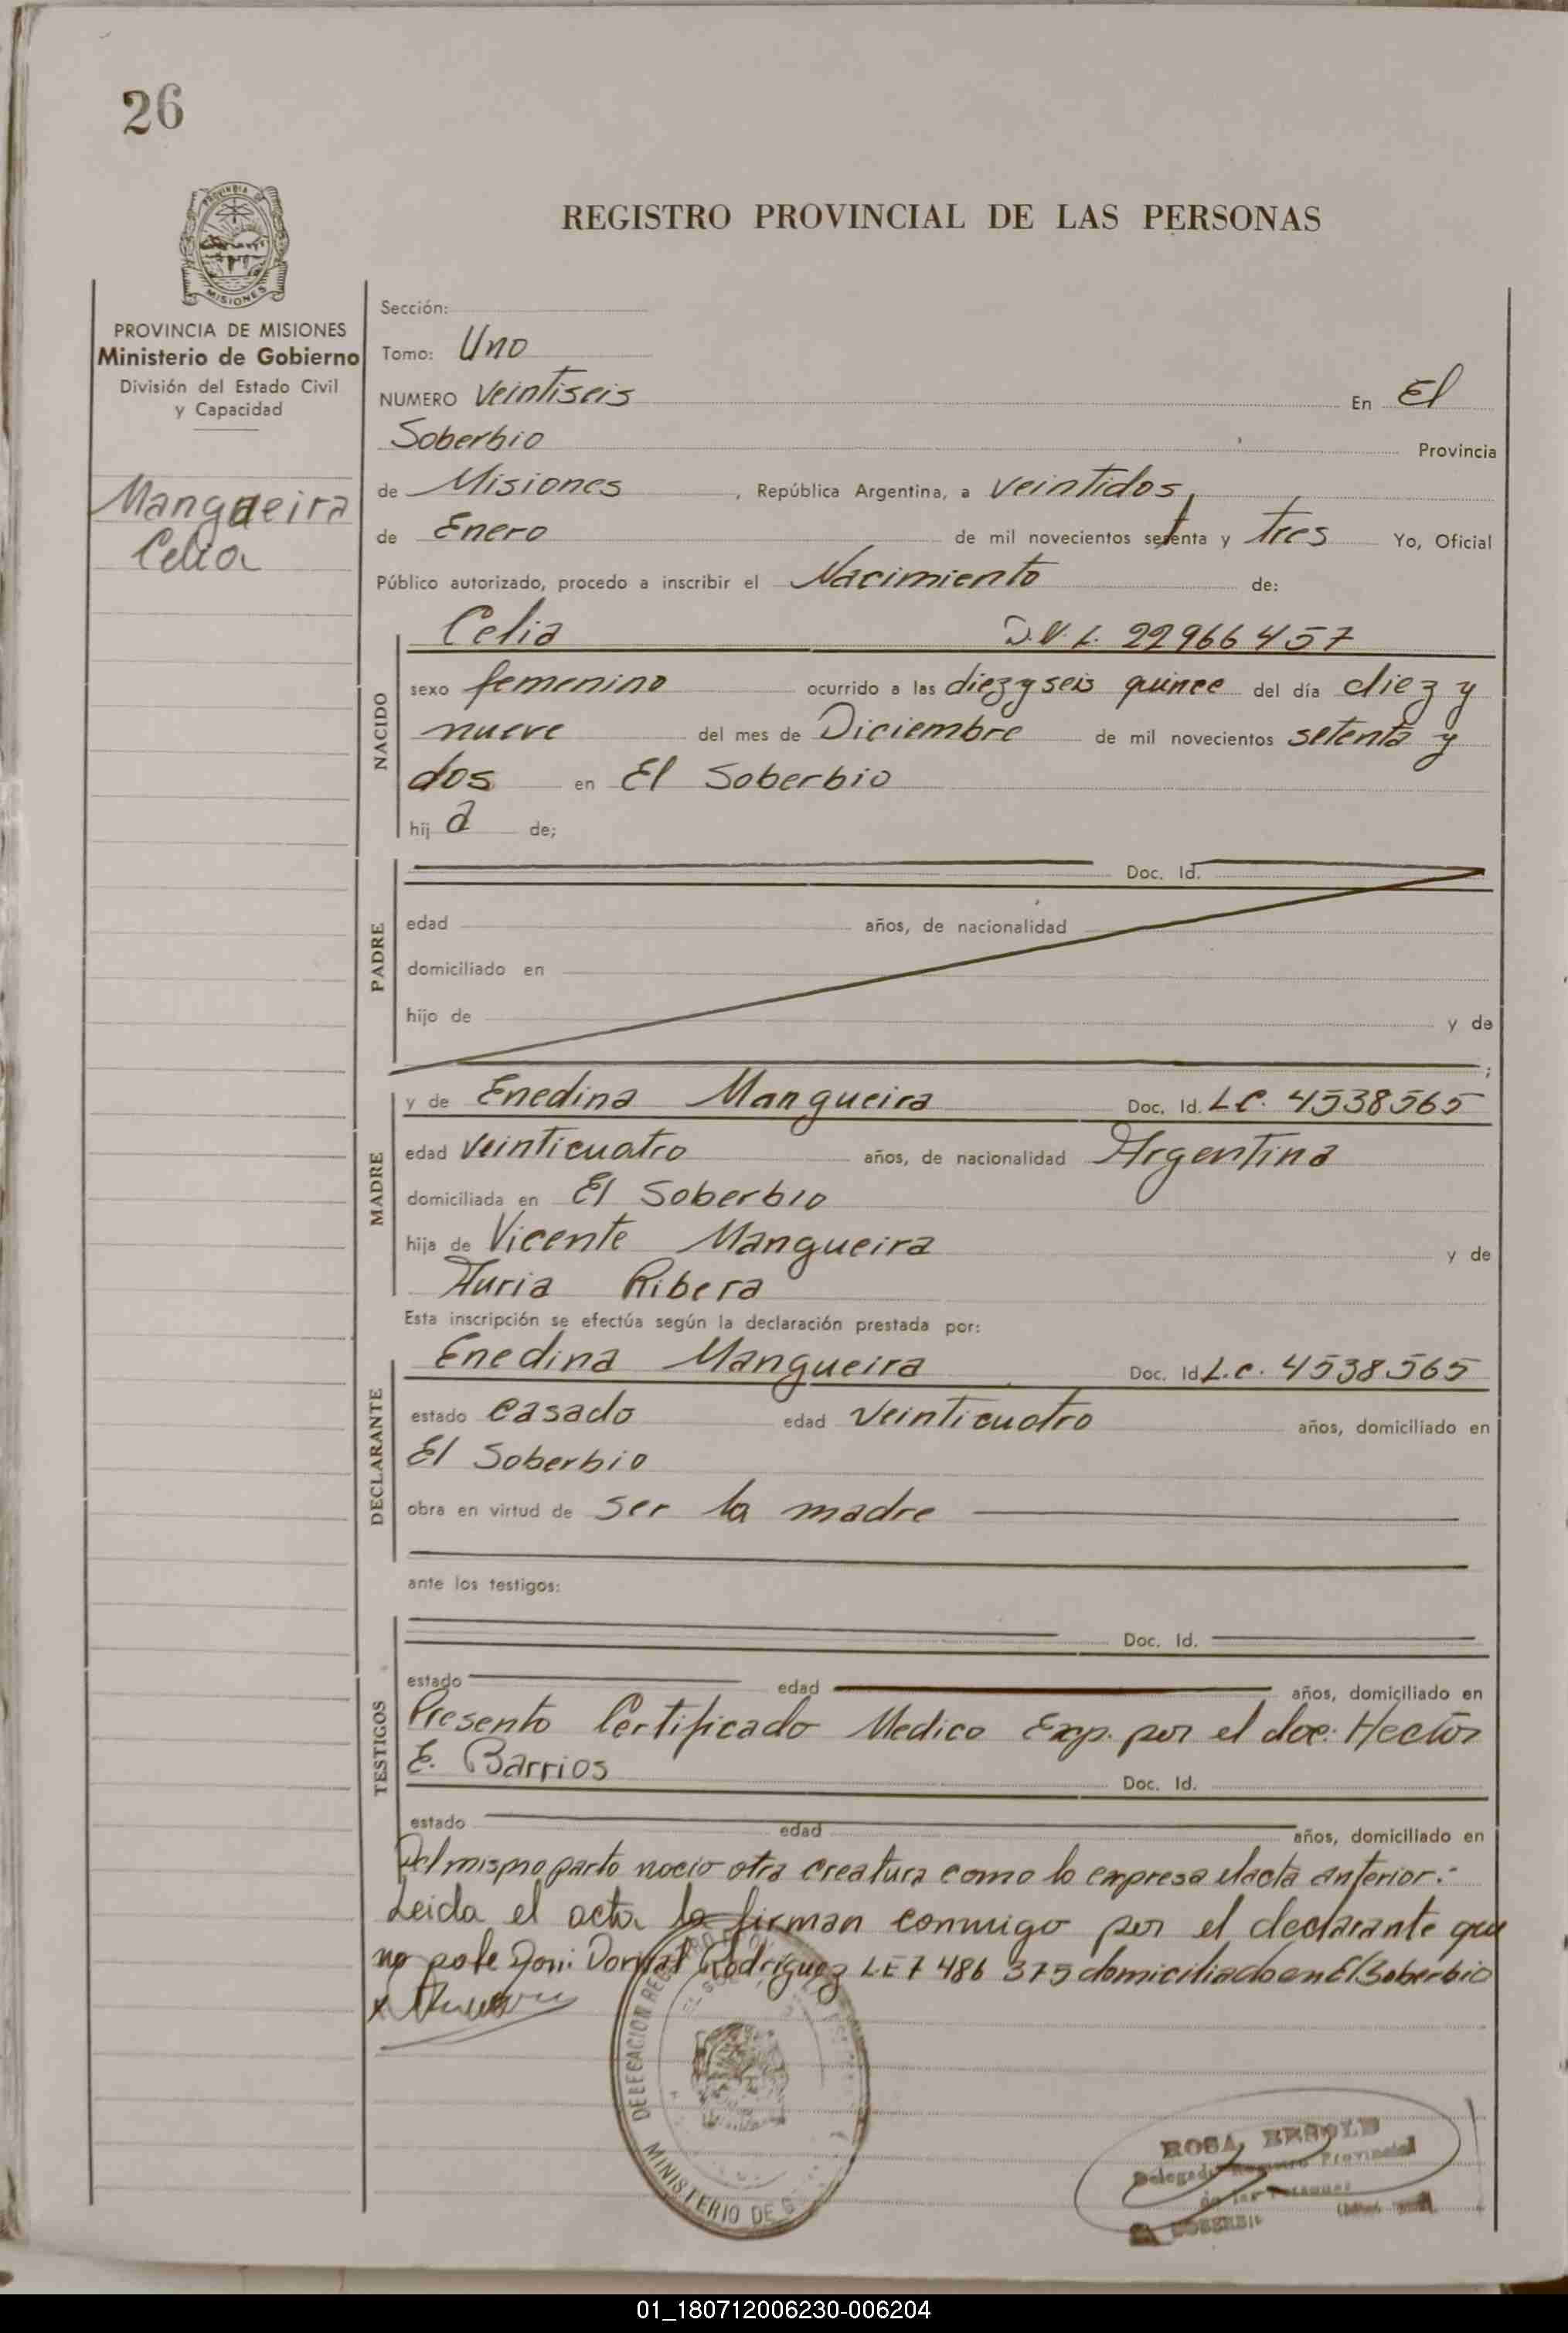 26
PROVINCIA
MISIONES
REGISTRO PROVINCIAL DE LAS PERSONAS
PROVINCIA DE MISIONES
Ministerio de Gobierno
División del Estado Civil
y Capacidad
Mangueira
Celia
Sección:
Tomo: Uno
NUMERO Veintiseis En El
Soberbio Provincia
de Misiones, República Argentina, a Veintidos
de Enero de mil novecientos setenta y tres Yo, Oficial
Público autorizado, procedo a inscribir el Nacimiento de:
NACIDO
Celia D.N.I. 22966457
sexo femenino ocurrido a las diez y seis quince del día diez y
nueve del mes de Diciembre de mil novecientos setenta y
dos en El Soberbio
hij a de;
PADRE
Doc. Id.
edad años, de nacionalidad
domiciliado en
hijo de y de
;
MADRE
y de Enedina Mangueira Doc. Id. L.C. 4538565
edad Veinticuatro años, de nacionalidad Argentina
domiciliada en El Soberbio
hija de Vicente Mangueira y de
Auria Ribera
Esta inscripción se efectúa según la declaración prestada por:
DECLARANTE
Enedina Mangueira Doc. Id L.C. 4538565
estado Casado edad Veinticuatro años, domiciliado en
El Soberbio
obra en virtud de ser la madre
ante los testigos:
TESTIGOS
Doc. Id.
estado edad años, domiciliado en
Presento Certificado Medico Exp. por el doc: Hector
E. Barrios Doc. Id.
estado edad años, domiciliado en
Del mismo parto nacio otra creatura como lo expresa el acta anterior.-
Leida el acta la firman conmigo por el declarante que
no Rodriguez L.E 7 486 375 domiciliado en El Soberbio
DELEGACION
MINISTERIO DE
ROSA
Provincial
01_180712006230-006204